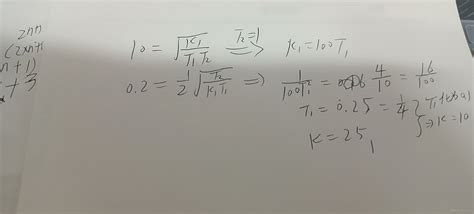 2nπ
(2n+1
n+1)
+3
10 = √(K₁/(T₁T₂)) T₂=1 ⟹ K₁=100T₁
0.2 = 1/2 √(T₂/(K₁T₁)) ⟹ 1/(100T₁²) = 4/10 = 16/100
T₁ = 0.25 = 1/4
K = 25
⇒ K = 10